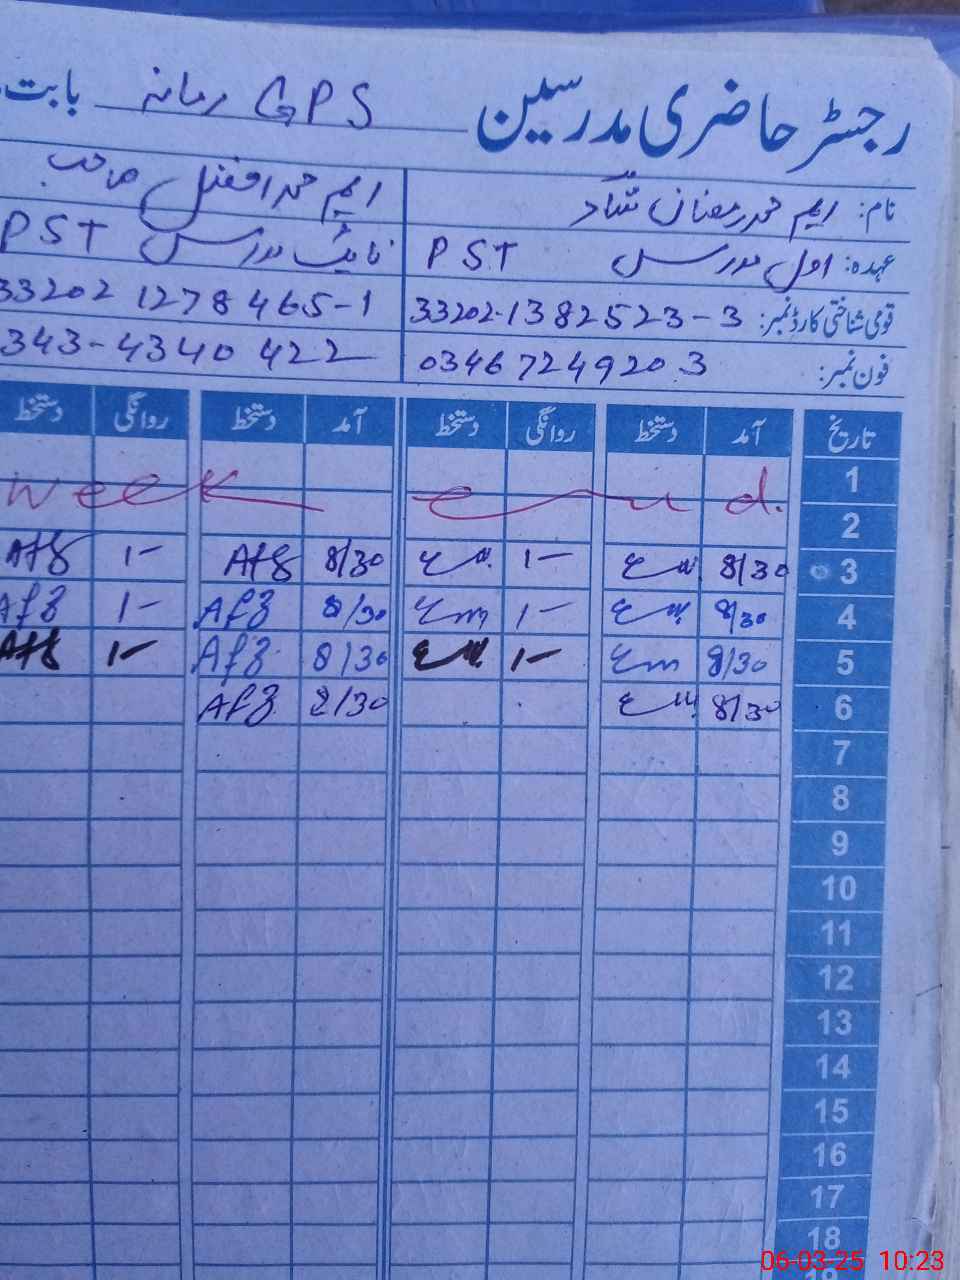 رجسٹر حاضری مدرسین GPS رمانہ بابت
نام: ایم محمد رمضان شاد ایم محمد افضل صاحب
عہدہ: اول مدرس PST نائب مدرس PST
قومی شناختی کارڈ نمبر: 33202-1382523-3 33202 1278465-1
فون نمبر: 03467249203 343-4340422
تاریخ آمد دستخط روانگی دستخط آمد دستخط روانگی دستخط
1
week end.
2
3 8/30 1- 8/30 Afz 1- Afz
4 8/30 1- 8/30 Afz 1- Afz
5 8/30 1- 8/30 Afz 1- Afz
6 8/30 8/30 Afz
7
8
9
10
11
12
13
14
15
16
17
18
19
06-03-25 10:23